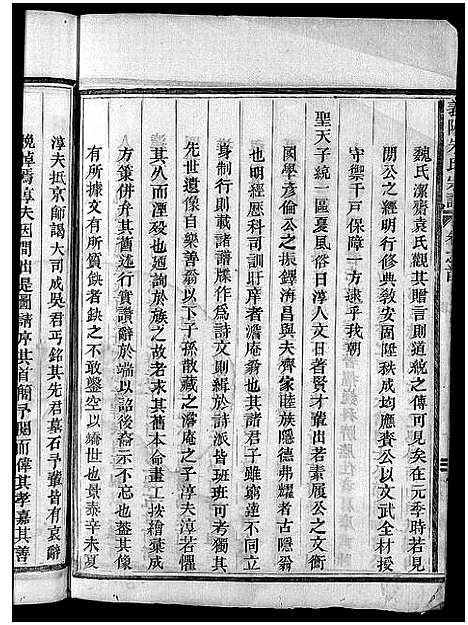 義陽朱氏宗譜 卷之首
魏氏潔齋袁氏觀其贈言則道統之傳可見矣在元季時若見
閒公之經明行修典教安固陞秩成均若賚公以文武全材授
守禦千戶保障一方逮乎我朝
聖天子統一區夏風俗日淳人文日著賢才輩出若素履公之文衡
國學彥倫公之振鐸洧昌與夫齊家睦族隱德弗耀者古隱翁
也明經歷科司訓盱庠者澹庵翁也其諸君子雖窮達不同立
身制行則載諸譜牒作為詩文則緝於詩派皆班班可考獨其
先世遺像自樂善翁以下子孫散藏之澹庵之子淳夫淳若懼
其久而湮歿也廼詢於族之故老求其舊本命畫工按繪彙成
方策併弁其舊述行實讚辭於端以詔後裔示不忘也蓋其像
有所據文有所質缺者缺之不敢鑿空以繑世也景泰辛未夏
淳夫抵京師謁大司成吳君丐銘其先君墓石予輩皆有哀辭
輓悼焉淳夫因間出是圖請序其首簡予閱而偉其孝嘉其善